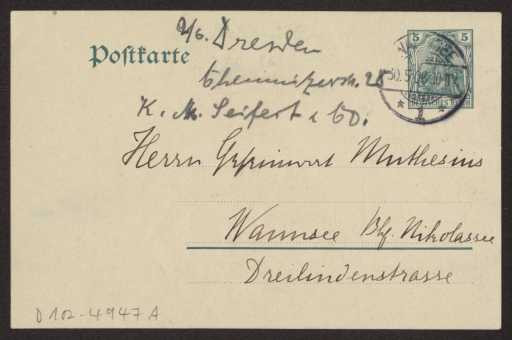 5 5
Postkarte
z/z. Dresden
Chemnitzerstr. 28
K. M. Seifert & Co.
Herrn Geheimrat Muthesius
Wannsee Bhf. Nikolassee
Dreilindenstrasse
D102-4947A